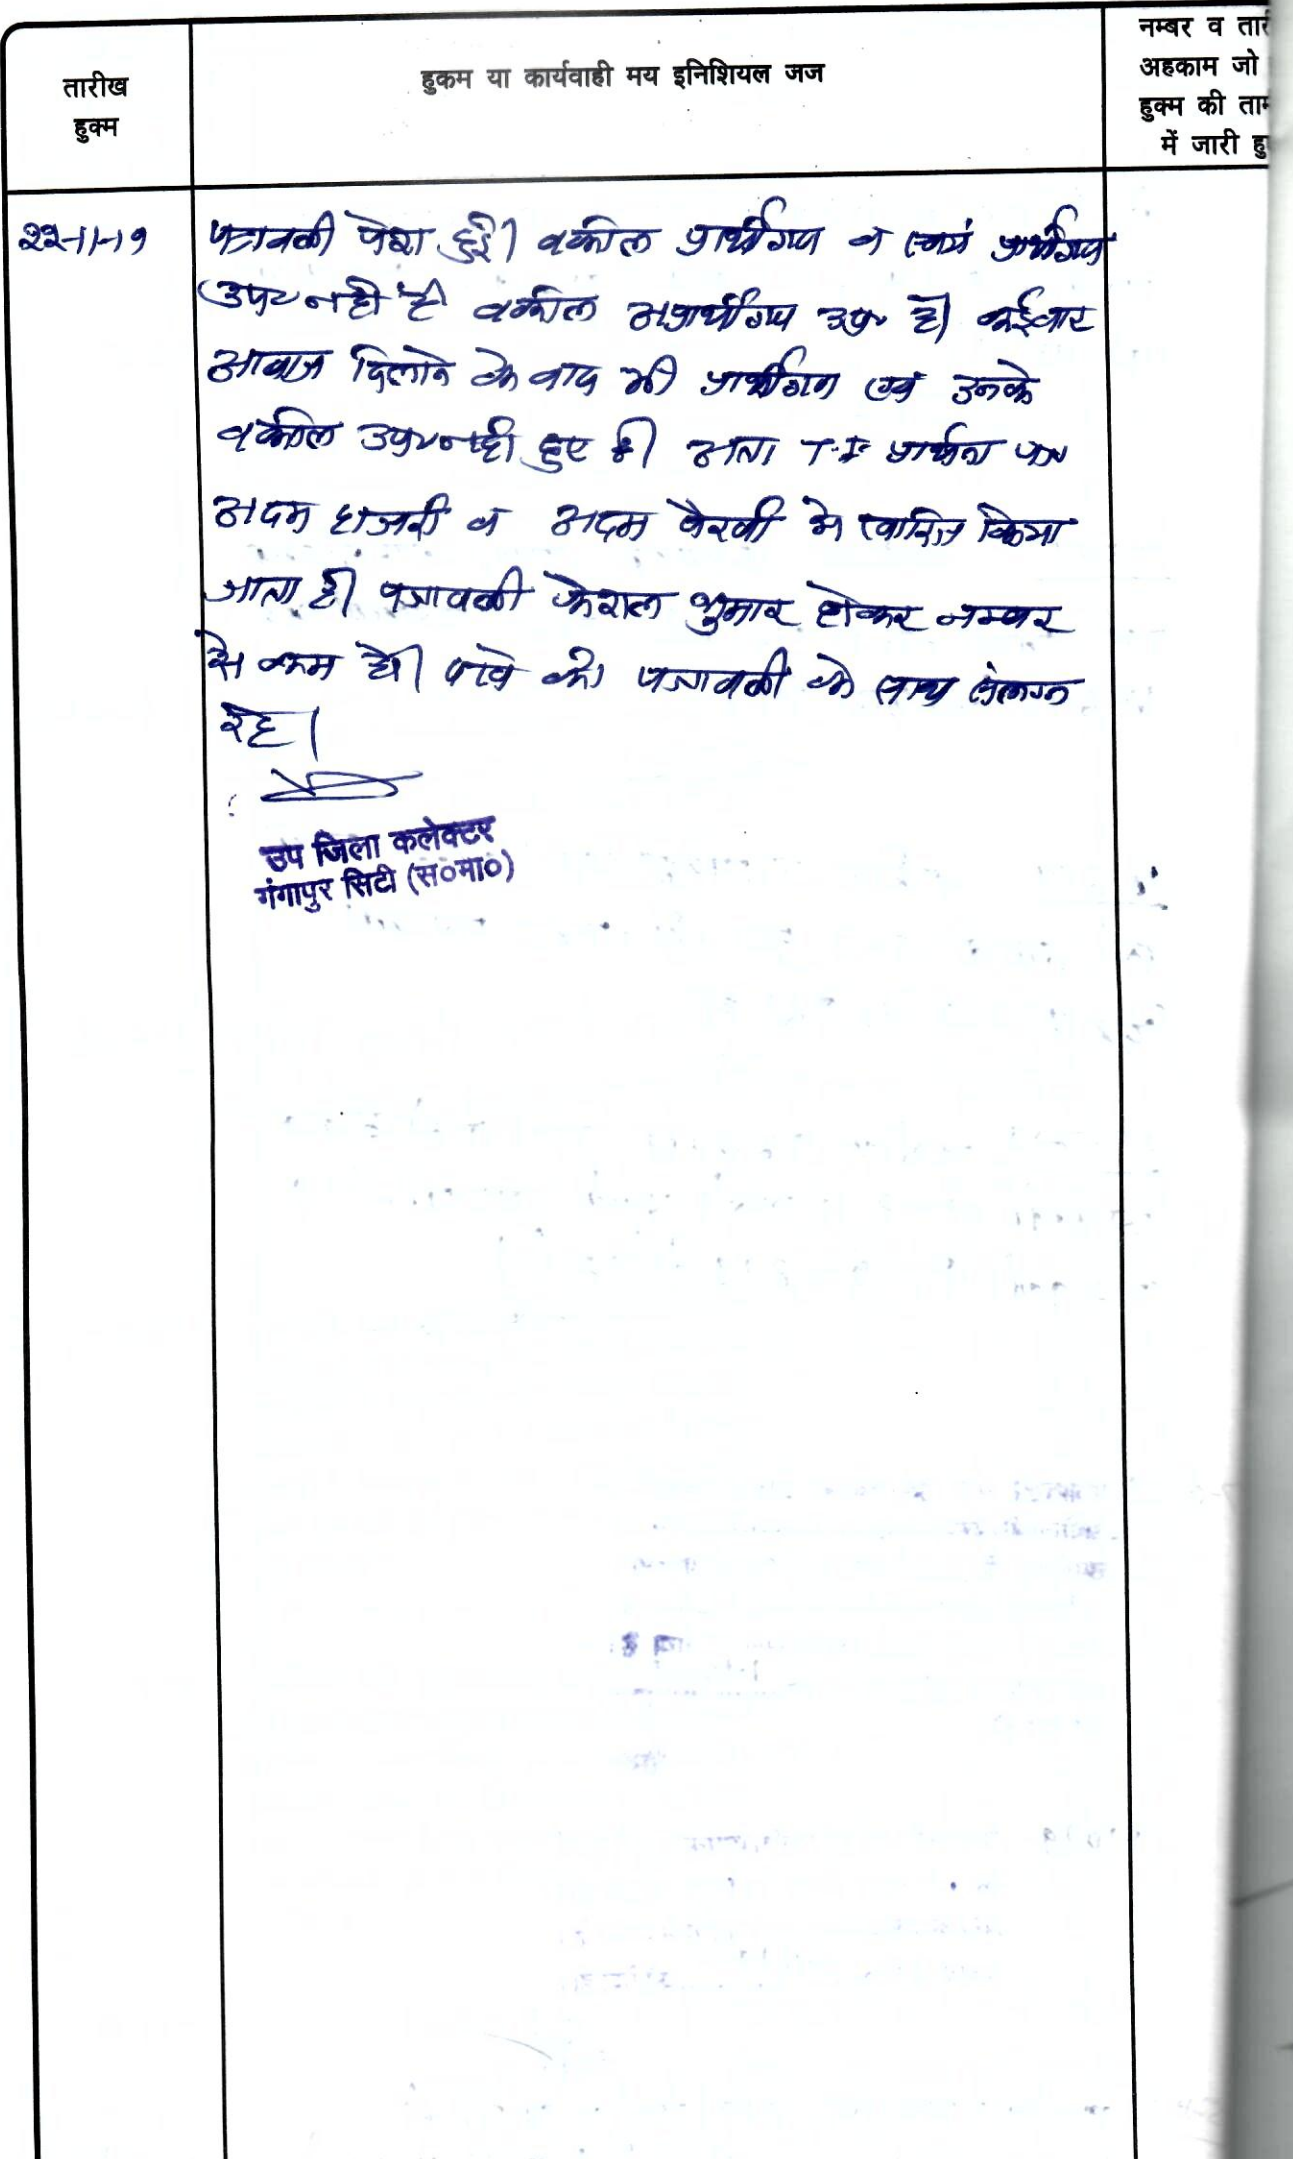 तारीख
हुक्म
हुकम या कार्यवाही मय इनिशियल जज
नम्बर व तारी
अहकाम जो
हुक्म की ताम
में जारी हु
22-11-19
पत्रावली पेश हुई। वकील प्रार्थीगण व स्वयं प्रार्थीगण
उप० नही है। वकील अप्रार्थीगण उप० है। कईबार
आवाज दिलाने के बाद भी प्रार्थीगण एवं उनके
वकील उप० नही हुए है। अतः T.I. प्रार्थना पत्र
अदम हाजरी व अदम पैरवी मे खारिज किया
जाता है। पत्रावली फैशल शुमार होकर नम्बर
से कम हो। मूल की पत्रावली के साथ संलग्न
रहे।
उप जिला कलेक्टर
गंगापुर सिटी (स०मा०)